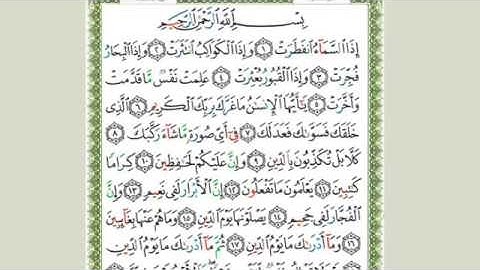 بِسْمِ اللَّهِ الرَّحْمَٰنِ الرَّحِيمِ
إِذَا السَّمَاءُ انْفَطَرَتْ ١ وَإِذَا الْكَوَاكِبُ انْتَثَرَتْ ٢ وَإِذَا الْبِحَارُ
فُجِّرَتْ ٣ وَإِذَا الْقُبُورُ بُعْثِرَتْ ٤ عَلِمَتْ نَفْسٌ مَّا قَدَّمَتْ
وَأَخَّرَتْ ٥ يَٰأَيُّهَا الْإِنسَٰنُ مَا غَرَّكَ بِرَبِّكَ الْكَرِيمِ ٦ الَّذِي
خَلَقَكَ فَسَوَّىٰكَ فَعَدَلَكَ ٧ فِي أَيِّ صُورَةٍ مَّا شَاءَ رَكَّبَكَ ٨
كَلَّا بَلْ تُكَذِّبُونَ بِالدِّينِ ٩ وَإِنَّ عَلَيْكُمْ لَحَٰفِظِينَ ١٠ كِرَامًا
كَٰتِبِينَ ١١ يَعْلَمُونَ مَا تَفْعَلُونَ ١٢ إِنَّ الْأَبْرَارَ لَفِي نَعِيمٍ ١٣ وَإِنَّ
الْفُجَّارَ لَفِي جَحِيمٍ ١٤ يَصْلَوْنَهَا يَوْمَ الدِّينِ ١٥ وَمَا هُمْ عَنْهَا بِغَائِبِينَ
١٦ وَمَا أَدْرَىٰكَ مَا يَوْمُ الدِّينِ ١٧ ثُمَّ مَا أَدْرَىٰكَ مَا يَوْمُ الدِّينِ